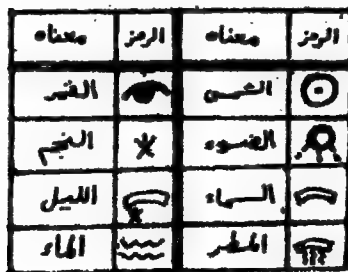 الرمز معناه الرمز معناه
الشمس القمر
الضوء النجم
السماء الليل
المطر الماء